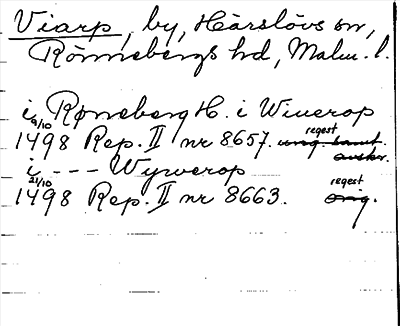 Viarp, by, Härslövs sn,
Rönnebergs hd, Malm. l.
i Røneberg H. i Wiuerop
9/10
1498 Rep. II nr 8657. orig. samt. regest
avskr.
i --- Wywerop
21/10
1498 Rep. II nr 8663. orig. regest